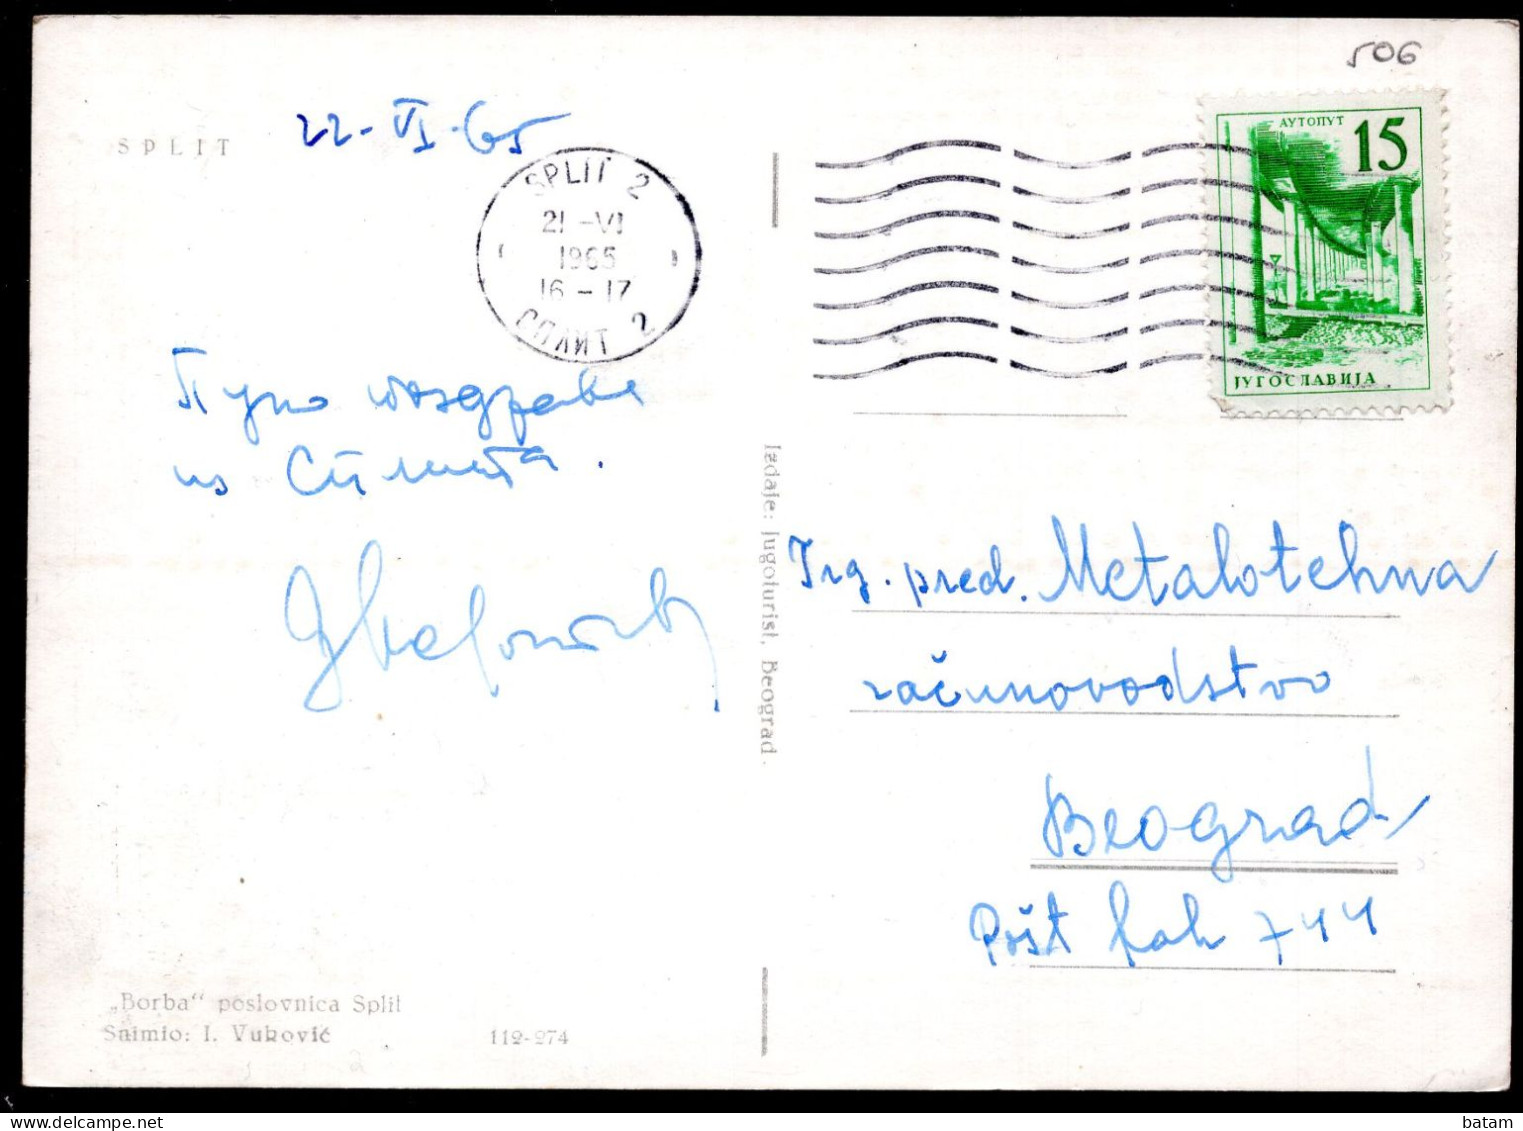 506
SPLIT
22-VI-65
SPLIT 2
21-VI
1965
16-17
СПЛИТ 2
АУТОПУТ
15
ЈУГОСЛАВИЈА
Пуно поздрава
из Сплита.
Izdaje: Jugoturist, Beograd.
Trg. pred. Metalotehna
računovodstvo
Beograd
Pošt fah 744
„Borba“ poslovnica Split
Snimio: I. Vuković
112-274
batam